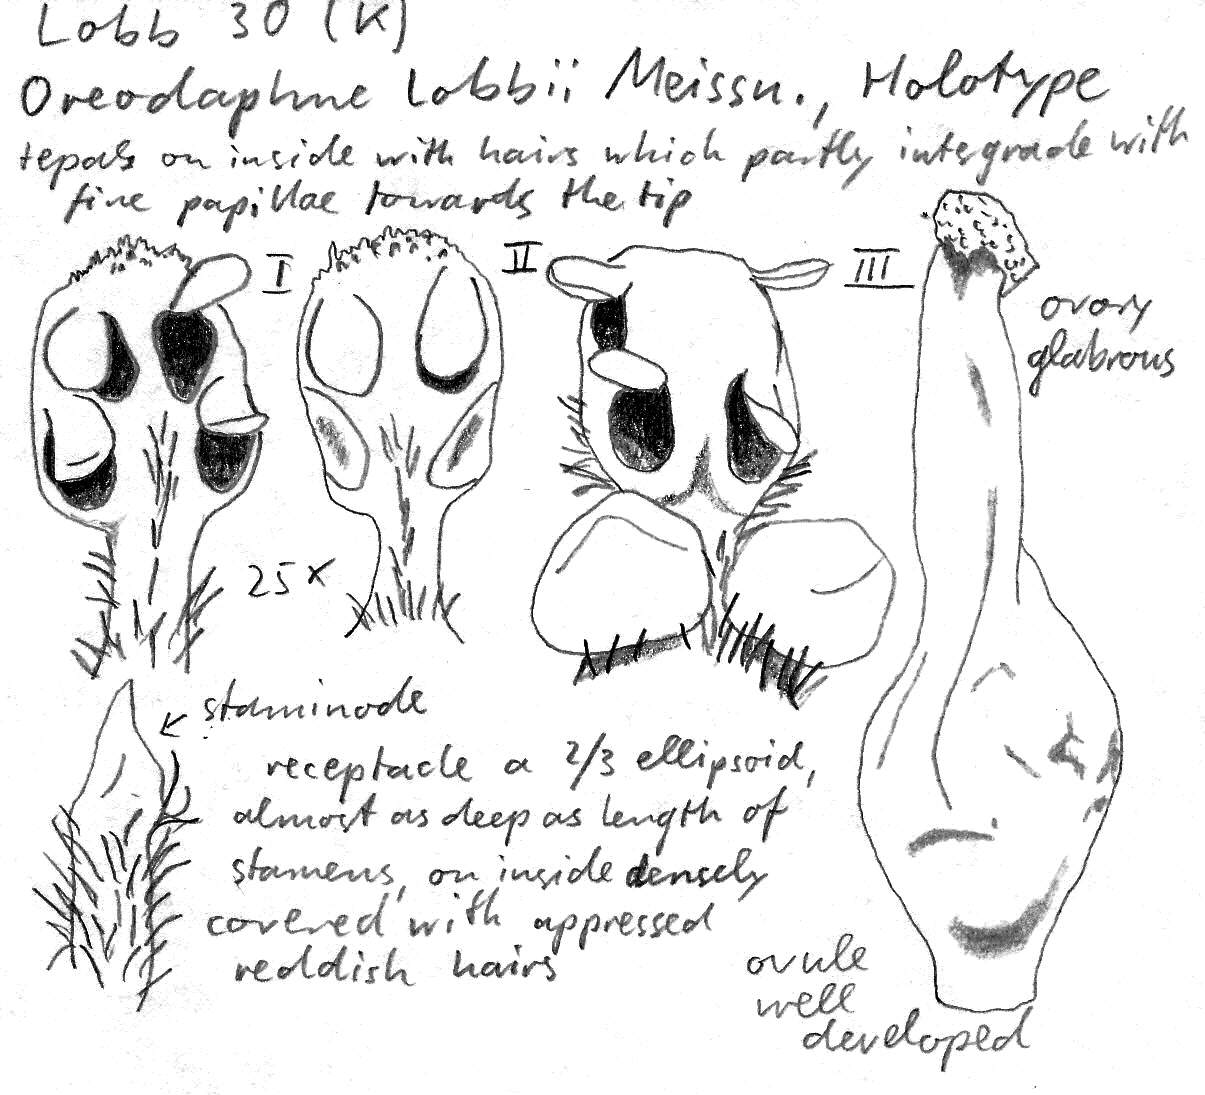 Lobb 30 (K)
Oreodaphne Lobbii Meissn., Holotype
tepals on inside with hairs which partly intergrade with
fine papillae towards the tip
I
II
III
ovary
glabrous
25 x
staminode
receptacle a 2/3 ellipsoid,
almost as deep as length of
stamens, on inside densely
covered with appressed
reddish hairs
ovule
well
developed